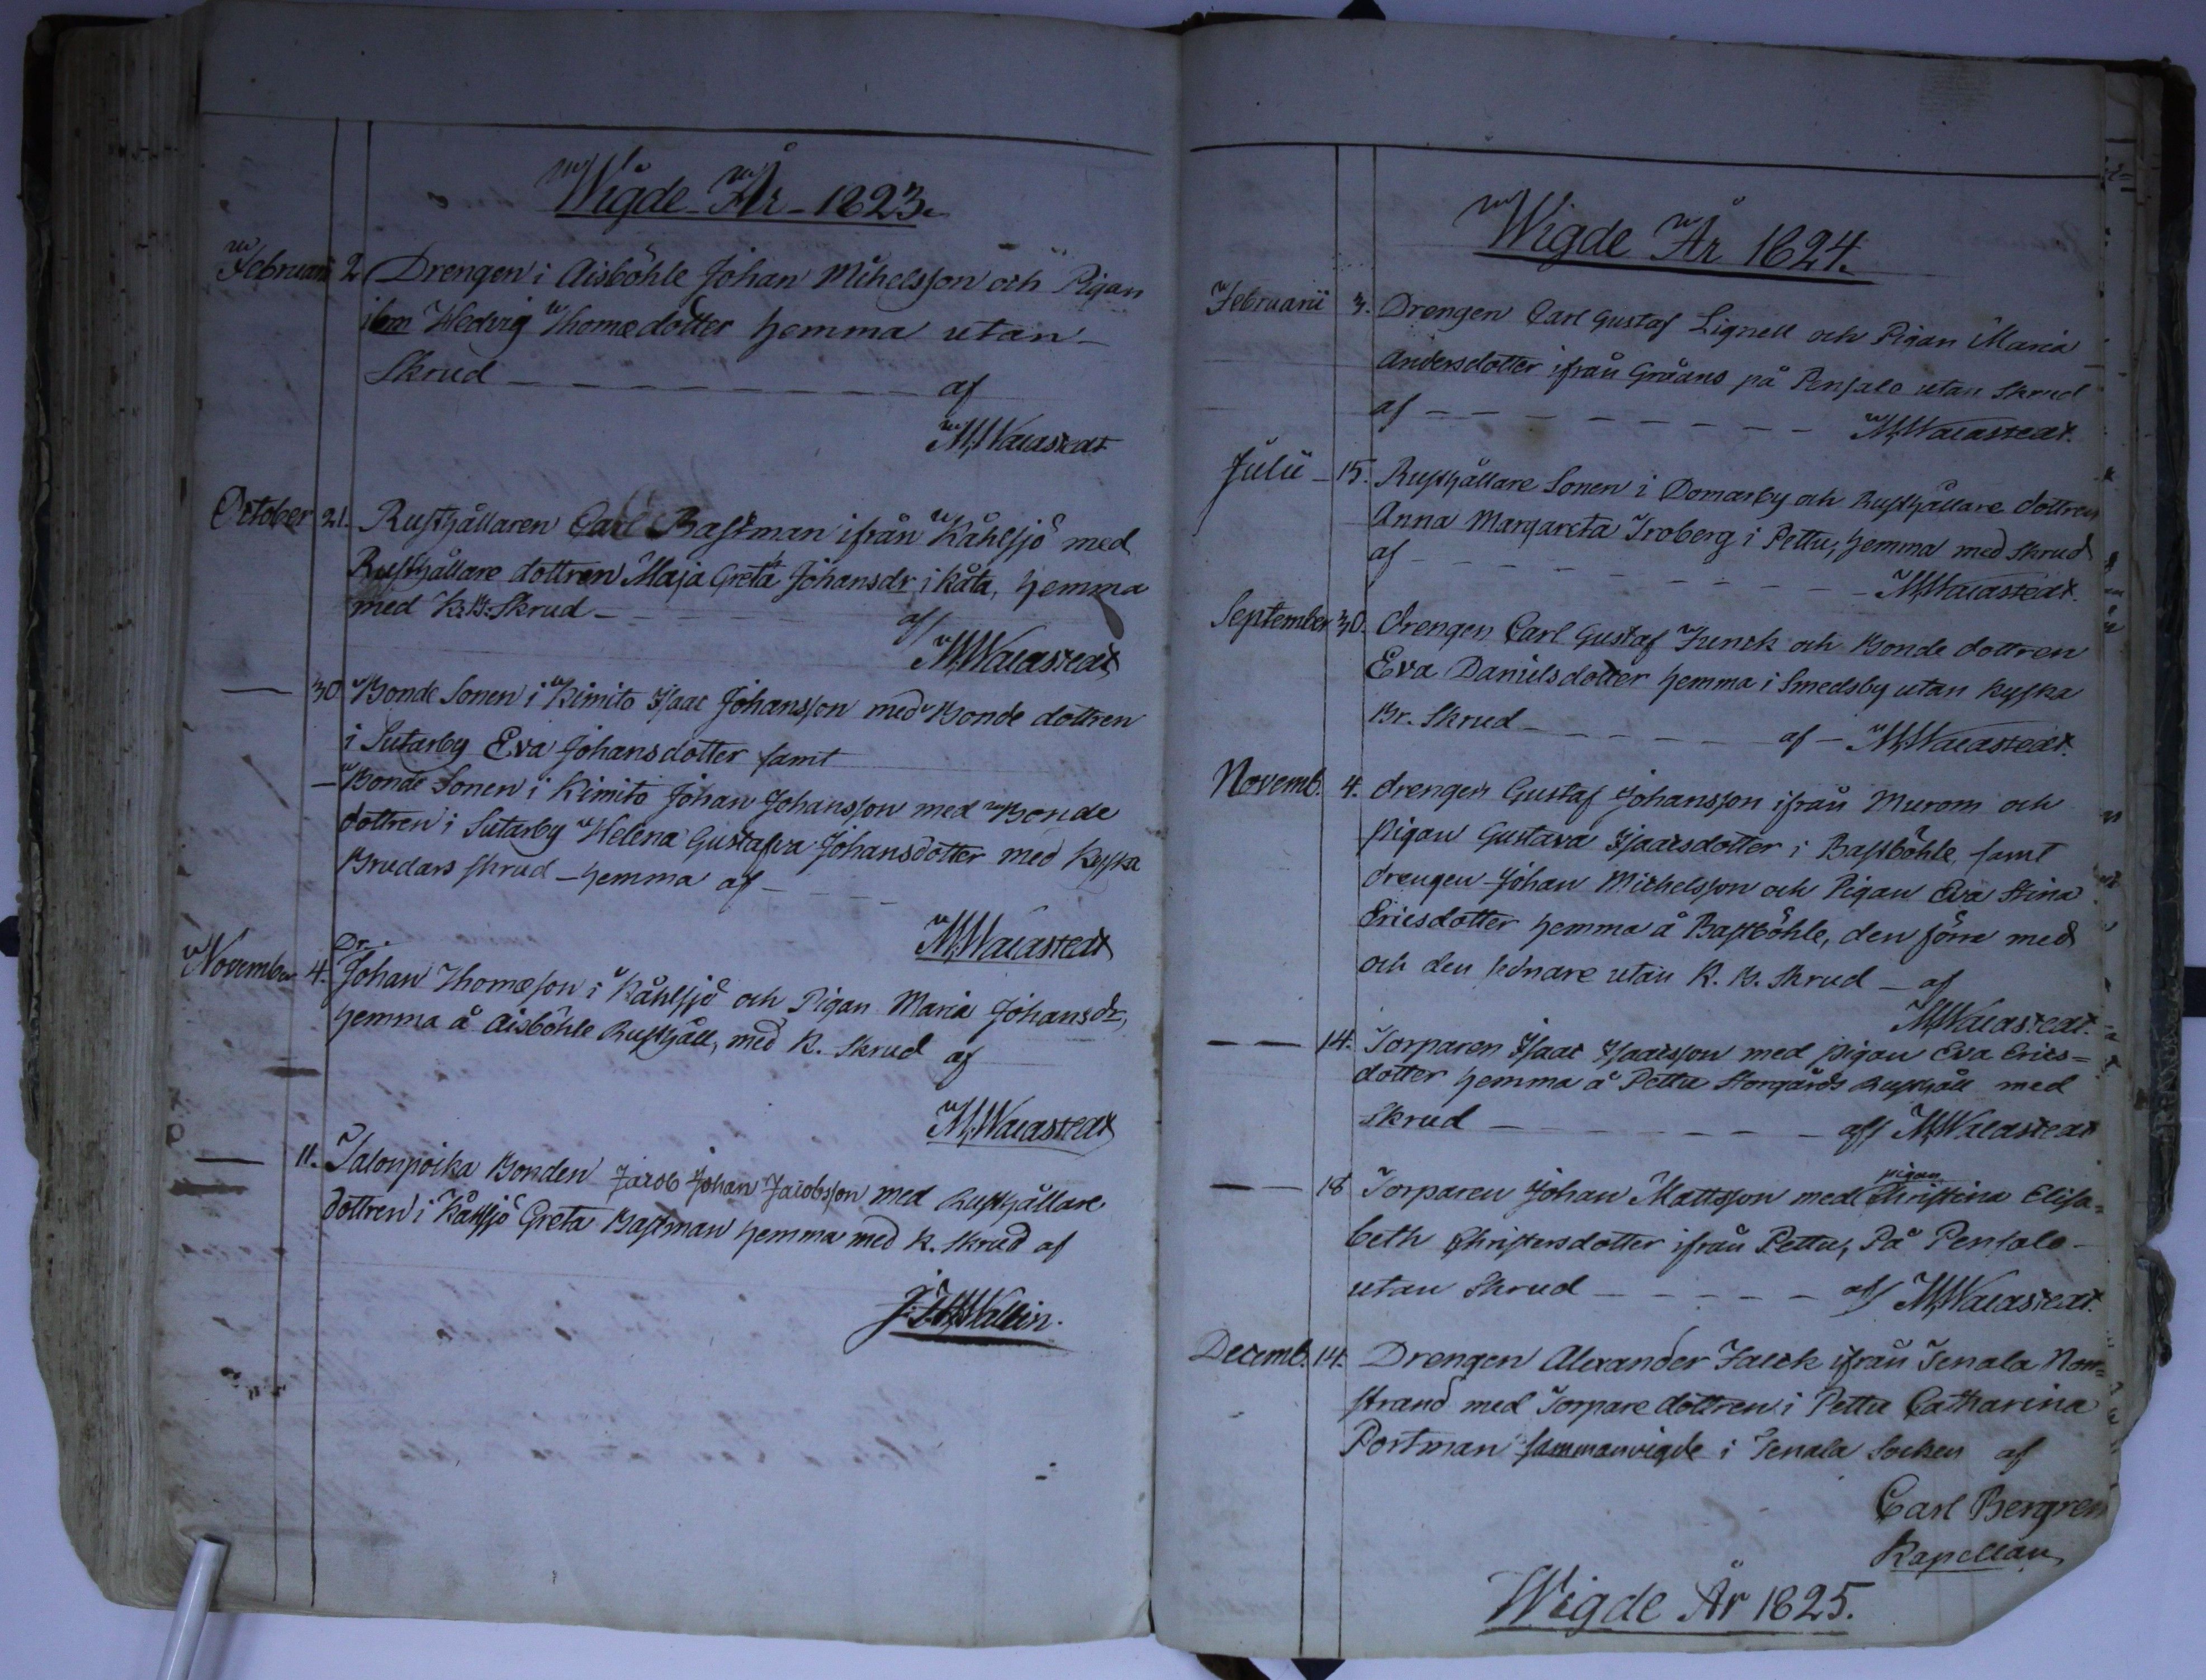 Wigde År 1823.
Februarii 2 Drengen i Aisböhle Johan Mihelsson och Pigan
ibm Hedvig Thomædotter hemma utan
Skrud - - - - - - - af
M. Walastedt
October 21. Rusthållaren Carl Bastman ifrån Kåhlsjö med
Rusthållare dottren Maja Greta Johansdr i Kåta, hemma
med K.B. Skrud - - - - af
M. Walastedt
— 30 Bonde Sonen i Kimito Isaac Johansson med Bonde dottren
i Sutarby Eva Johansdotter samt
— Bonde Sonen i Kimito Johan Johansson med Bonde
dottren i Sutarby Helena Gustafva Johansdotter med Kyska
Brudars skrud - hemma af - - -
M. Walastedt
Dr.
November 4. Johan Thomæson i Kåhlsjö och Pigan Maria Johansdr,
hemma å Aisböhle Rusthåll, med K. Skrud af
M. Walastedt
— 11. Talonpoika Bonden Jacob Johan Jacobsson med Rusthållare
dottren i Kåhlsjö Greta Bastman hemma med K. skrud af
Wallin.
Wigde År 1824.
Februarii 3. Drengen Carl Gustaf Lignell och Pigan Maria
Andersdotter ifrån Gråans på Pensalo utan Skrud
af - - - - - - - - M. Walastedt.
Julii - 15. Rusthållare Sonen i Domarby och Rusthållare dottren
Anna Margareta Troberg i Pettu, hemma med Skrud
af - - - - - - - - M. Walastedt.
September 30. drengen Carl Gustaf Junck och Bonde dottren
Eva Danielsdotter hemma i Smedsby utan kyska
Br. Skrud - - - - - af - M. Walastedt.
Novemb. 4. drengen Gustaf Johansson ifrån Murom och
pigan Gustava Isaacsdotter i Bastböhle, samt
drengen Johan Michelsson och Pigan Eva Stina
Ericsdotter hemma å Bastböhle, den förra med
och den sednare utan K. B. Skrud - af
M. Walastedt.
— — 14. Torparen Isaac Isaacsson med pigan Eva Erics=
dotter hemma å Pettu Storgårds Rusthåll med
Skrud - - - - - - - af M. Walastedt
pigan
— — 18 Torparen Johan Mattsson med Christina Elisa=
beth Christersdotter ifrån Pettu, På Pensalo -
utan Skrud - - - - - af M. Walastedt.
Decemb. 14. Drengen Alexander Falck ifrån Tenala Norr=
strand med Torpare dottren i Pettu Catharina
Portman sammanvigde i Tenala Socken af
Carl Bergren
Kapellan
Wigde År 1825.